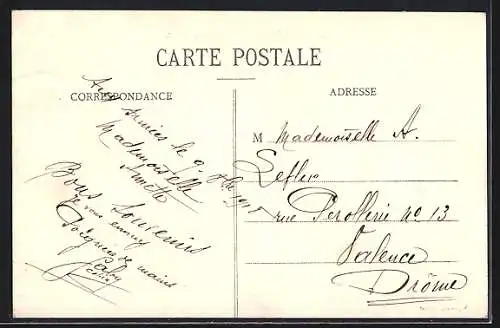 CARTE POSTALE
CORRESPONDANCE
ADRESSE
le 9 1915
Mademoiselle
Bons Souvenirs
Poignées de mains
M Mademoiselle A.
Lefler
rue Perollerie no 13
Valence
Drôme